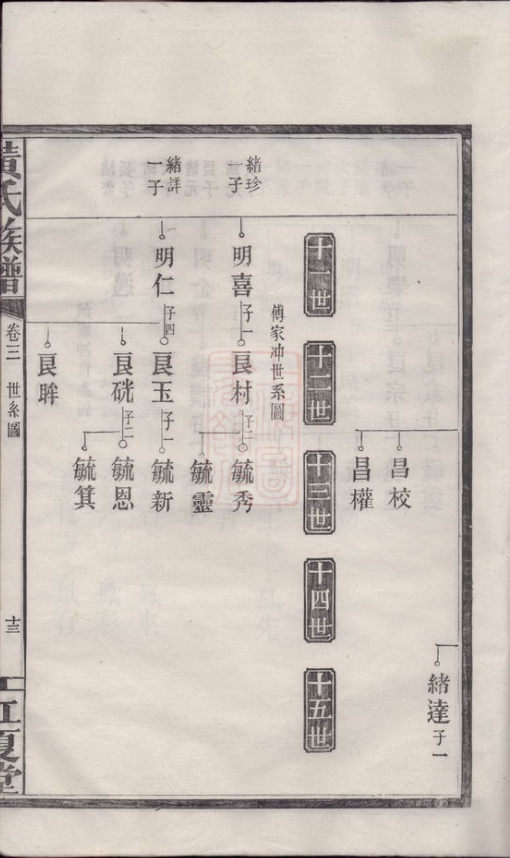 緒達子一
昌校
昌權
十一世
十二世
十三世
十四世
十五世
傅家冲世系圖
緒珍一子
明喜子一
良村子二
毓秀
毓靈
緒詳一子
明仁子四
良玉子一
毓新
良硄子二
毓恩
毓箕
良眸
黃氏族譜
卷三
世系圖
十三
江夏堂